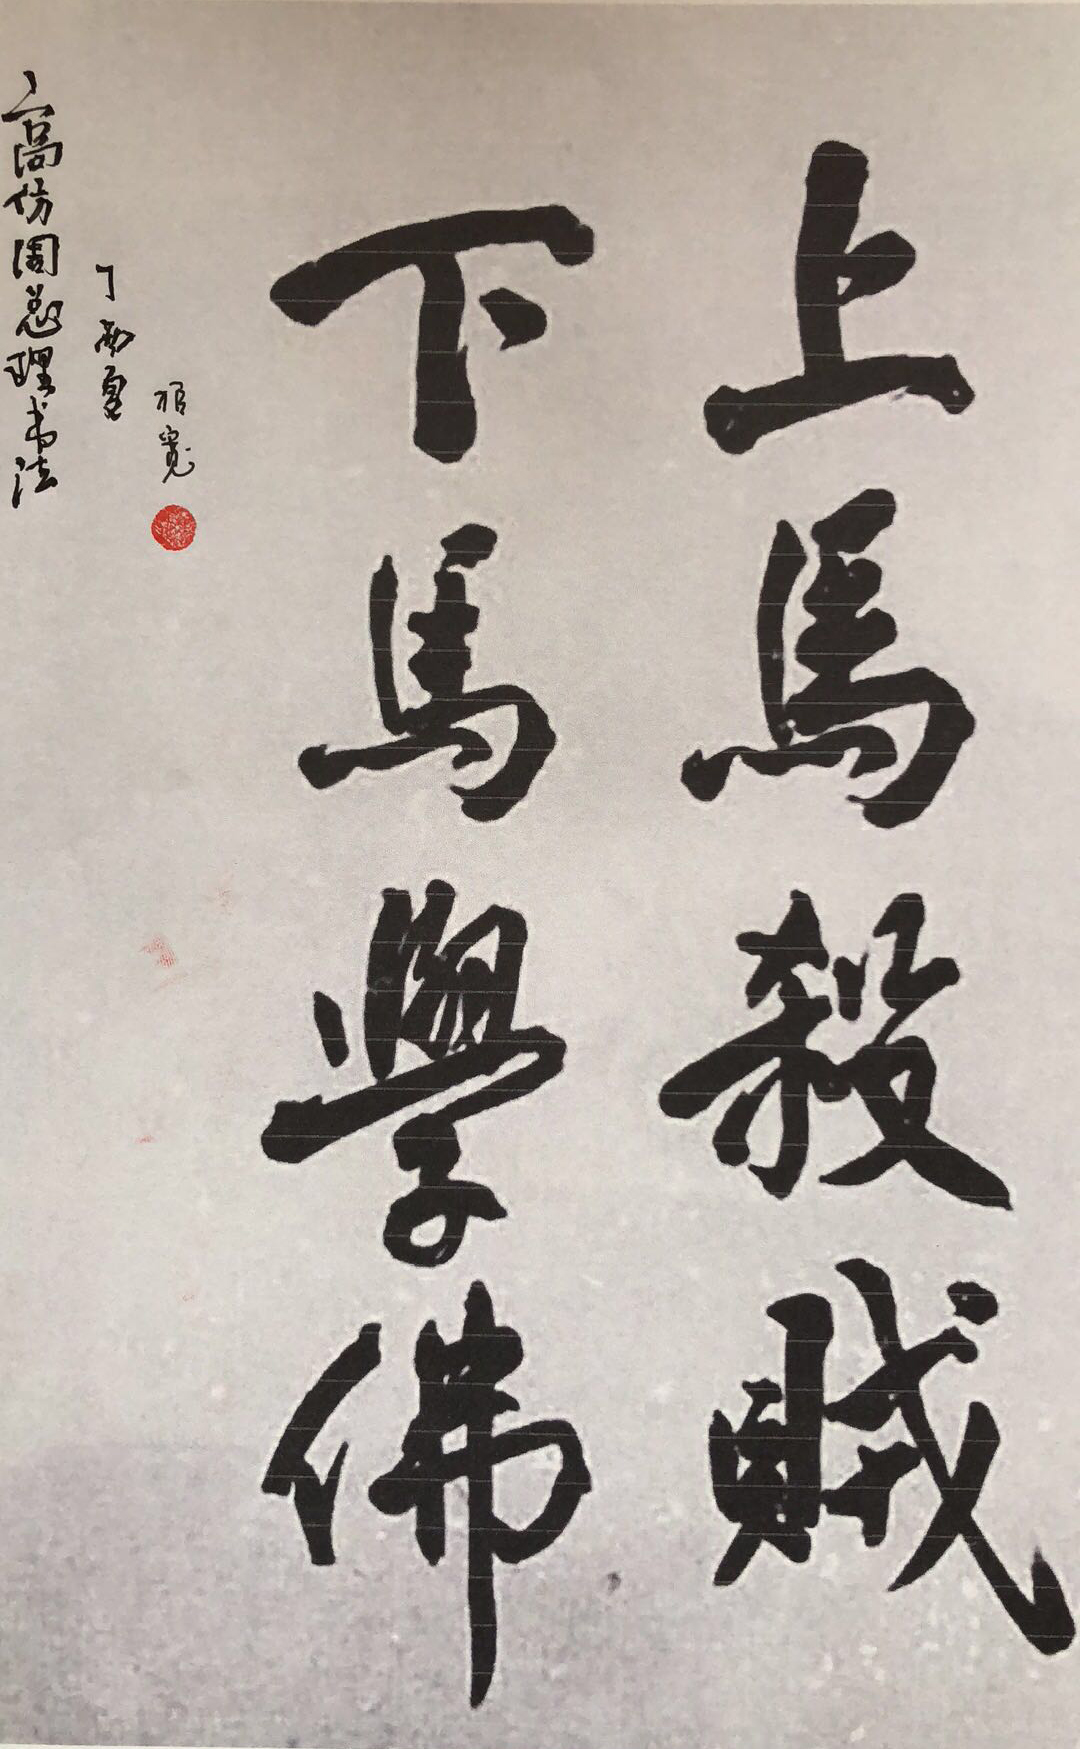 上馬殺賊
下馬學佛
高仿周总理书法
丁酉夏
寬